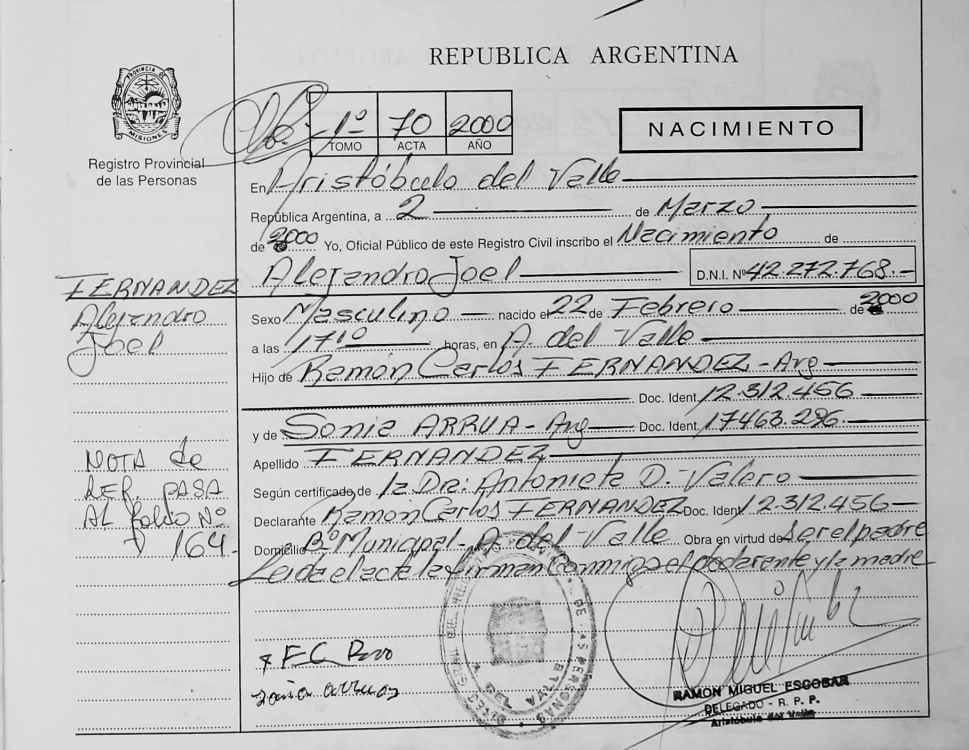 REPUBLICA ARGENTINA
PROVINCIA DE MISIONES
Registro Provincial
de las Personas
1º 70 2000
TOMO ACTA AÑO
NACIMIENTO
En Aristóbulo del Valle
República Argentina, a 2 de Marzo
de 2000 Yo, Oficial Público de este Registro Civil inscribo el Nacimiento de
Alejandro Joel D.N.I. Nº 42.272.768.-
FERNANDEZ
Alejandro
Joel
Sexo Masculino nacido el 22 de Febrero de 2000
a las 17¹⁰ horas, en A. del Valle
Hijo de Ramón Carlos FERNANDEZ - Arg
Doc. Ident. 12.312.456
y de Sonia ARRUA - Arg Doc. Ident. 17463.296.
Apellido FERNANDEZ
Según certificado de la Dra: Antonieta D. Valero
Declarante Ramon Carlos FERNANDEZ Doc. Ident. 12.312.456
Domicilio Bº Municipal - A. del Valle Obra en virtud de Ser el padre
Leida el acta la firman Conmigo el declarante y la madre
NOTA de
REF. PASA
AL folio Nº
164-
DE LAS PERSONAS
A. DEL VALLE
RAMON MIGUEL ESCOBAR
DELEGADO - R. P. P.
Aristóbulo del Valle